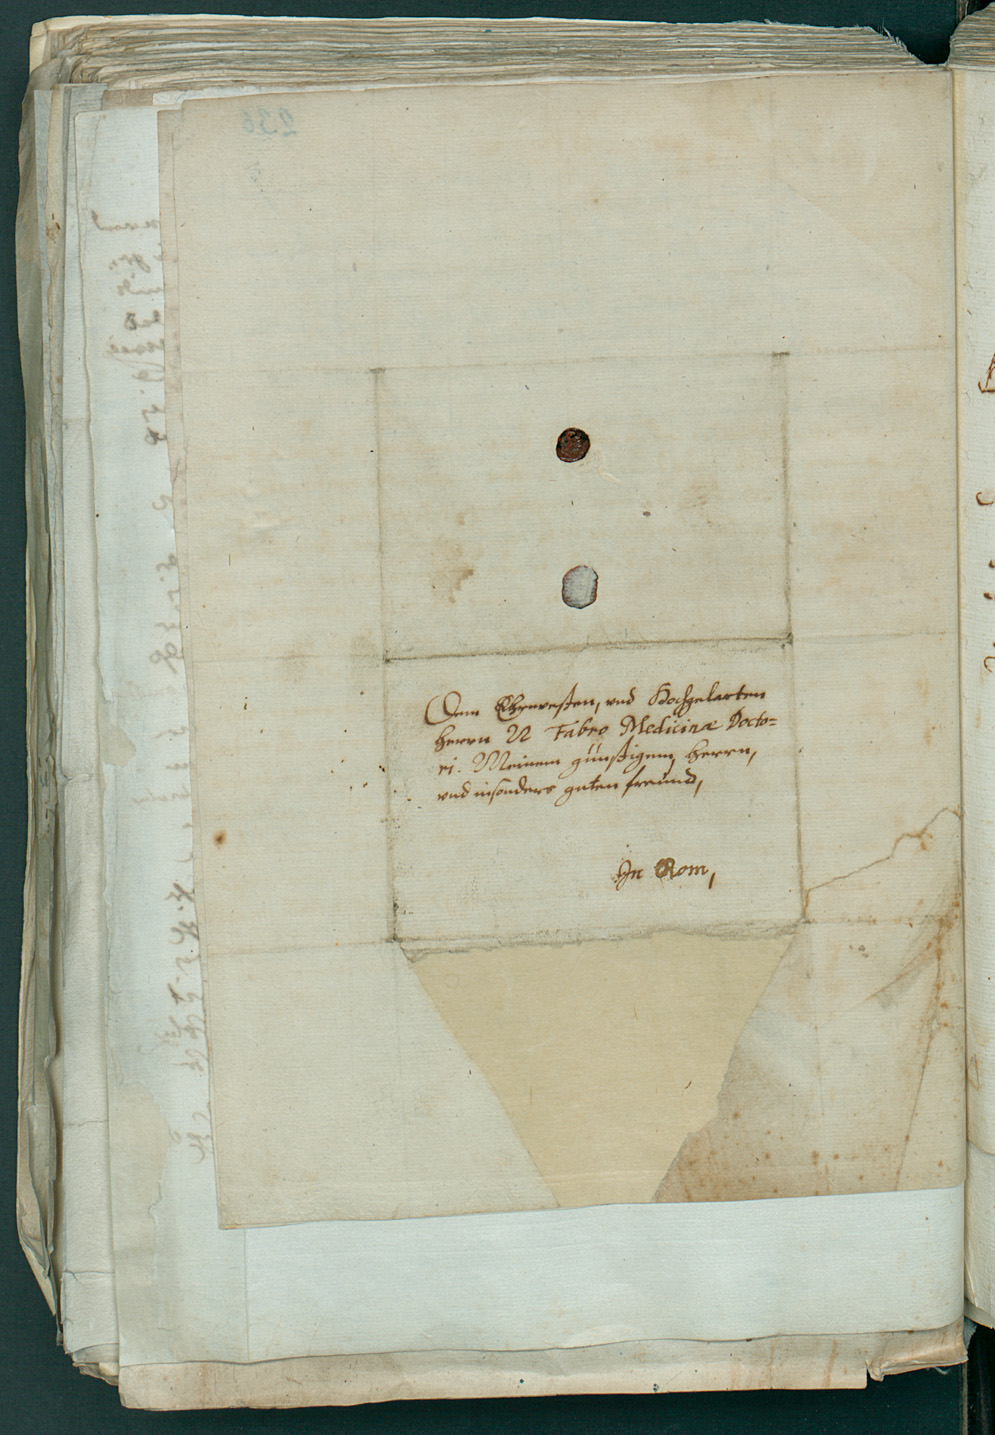 Dem Ehrnvesten, und Hochgelarten
herrn N Fabro Medicinæ Docto=
ri. Meinem günstigem, herrn,
und insonders guten freund,
In Rom,
236